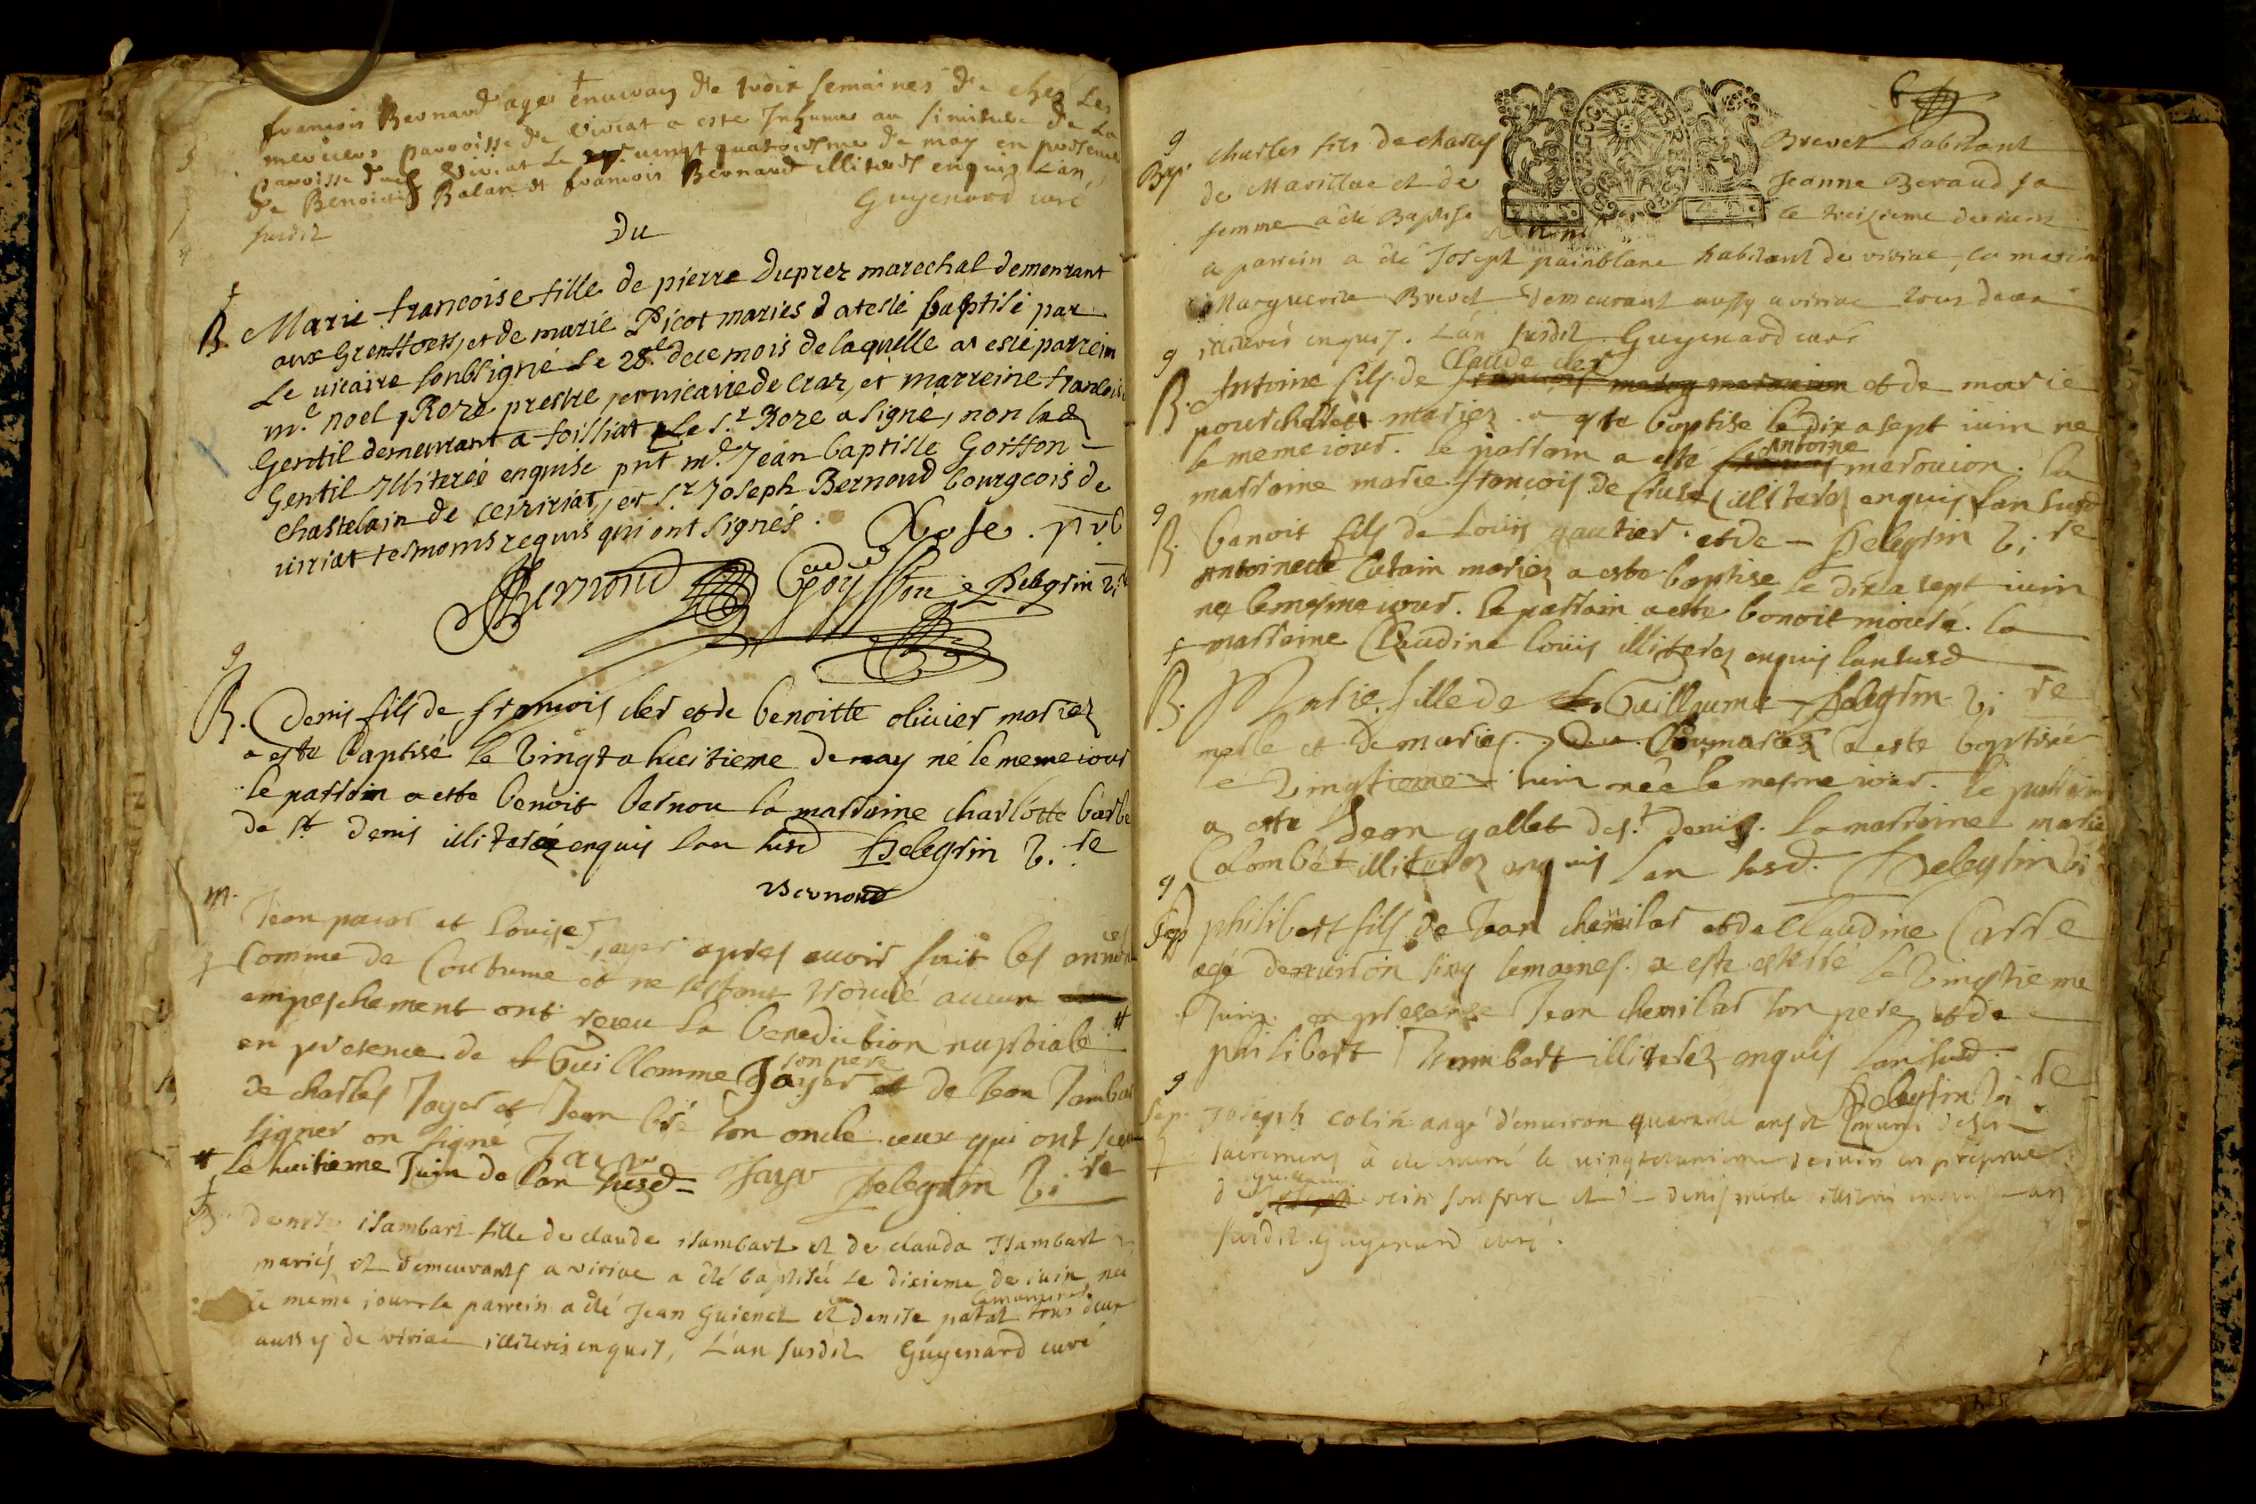 françois Bernard agé enuiron de trois semaines de chez les
merciers parroisse de viriat a esté Inhumé au Cimitiere de La
parroisse dud viriat Le vingt quatriesme de may en presence
de Benoict Balan et françois Bernard illiterés enquis L'an
susdit Guyenard curé
Du
B. Marie francoise fille de pierre Duprez marechal demeurant
aux Greffets, et de marie Picot mariés a esté baptisé par
Le uicaire soubsigné Le 28.e de ce mois de laquelle a esté parrein
m.e noel Roze prestre et vicaire de Craz, et marreine francoise
Gentil demeurant a foissiat Le S.r Roze a signé, non lad
Gentil Illiterée enquise pnt m.e Jean baptiste Goisson
Chastelain de ceiziriat, et s.r Joseph Bernoud bourgeois de
uiriat tesmoins requis qui ont signés. Rose. prb
Bernoud Goysson Pelegrin vi
B. Denis fils de françois cler et de benoitte olivier mariez
a este baptisé le vingt a huitieme de may né le meme iour
le parrain a este benoit bernou la marraine charlotte barbe
de st denis illiterez enquis lan susd Pelegrin vi.re
Bernoud
m. Jean pacar et Louise Jayer apres auoir fait les annonces
Comme de Coutume et ne sestant trouvé aucun
empeschement ont receu la benediction nuptiale #
en presence de Guillomme Jayer son pere et de Jean Jambar
de charles Jayer et Jean bré son oncle ceux qui ont sceu
signer on signé Jayr
# Le huitieme Juin de lan susd Jayr Pelegrin vi.re
B. denise isambart fille de claude isambart et de claude Isambart
mariés et demeurants a viriac a été baptisée le dixieme de iuin née
le meme jour le parrein a été Jean Guienet et la marreine denise patat tous deux
aussy de viriac illiterés enquis, L'an susdit Guyenard curé
Bap. charles fils de charles Brevet habitant
de Marillac et de Jeanne Beraud sa
femme a été Baptisé le treizieme de iuin
le parrein a été Joseph painblanc habitant de viriac, la marreine
Marguerite Brevet demeurant aussy a viriac tous deux
illiterés enquis. L'an susdit Guyenard curé
B. Antoine fils de Claude cler et de marie
pourchellet mariez a este baptise le dix a sept iuin ne
le meme iour. le parrain a esté Antoine marouion. la
marraine marie françois De Cruse illiterez enquis lan susd
B. benoit fils de Louis gautier. et de Pelegrin vi.re
Antoinette Cutain mariez a este baptise le dix a sept iuin
ne le mesme iour. le parrain a este benoit moiusé. la
marraine Claudine louis illiterez enquis lan susd
B. Marie fille de Guillaume Pelegrin vi.re
merle et de marie Commarez a este baptisée
le vingtieme iuin née le mesme iour. le parrain
a este Jean gallet de s.t denis. la marraine marie
Colombet illiterez enquis lan susd. Pelegrin vi
Sep philibert fils de Jean chevilar et de Claudine Carre
agé denuiron sixs semaines. a este enterré le vingtieme
Juin. en presense Jean chevilar son pere et de
philibert humbert illiterez enquis lan susd.
Pelegrin vi.re
Sep. Joseph colin aagé d'enuiron quarante ans et muni de ses
sacremens a été enterré le vingt iuin en presence
de Guillaume colin son frere et de denis merle illiterés enquis l'an
susdit Guyenard curé.